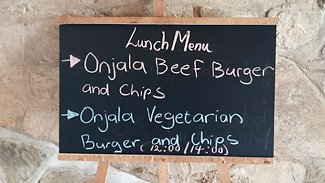 Lunch Menu
Onjala Beef Burger
and Chips
Onjala Vegetarian
Burger and Chips
(12:00/14:00)